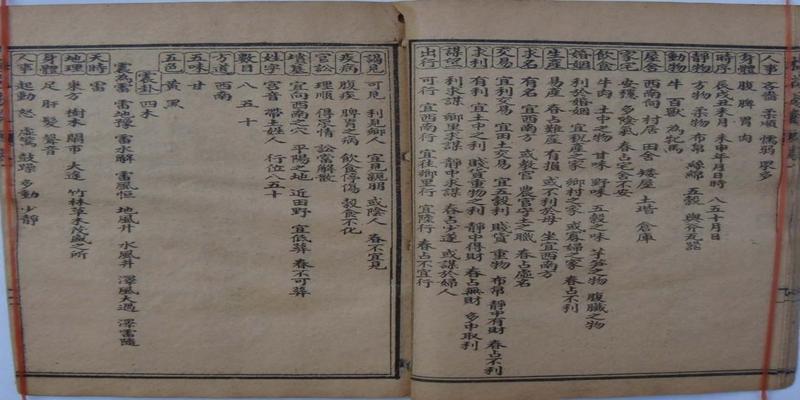 人事 吝嗇 柔順 懦弱 眾多
身體 腹 脾 胃 肉
時序 辰戌丑未月 未申年月日時 八五十月日
靜物 方物 柔物 布帛 絲綿 五穀 輿斧瓦器
動物 牛 百獸 為牝馬
屋舍 西南向 村居 田舍 矮屋 土堦 倉庫
家宅 安穩 多陰氣 春占宅舍不安
飲食 牛肉 土中之物 甘味 野味 五穀之味 芋筍之物 腹臟之物
婚姻 利於婚姻 宜稅產之家 鄉村之家 或寡婦之家 春占不利
生產 易產 春占難產 有損 或不利於母 坐宜西南方
求名 有名 宜西南方 或教官 農官守土之職 春占虛名
交易 宜利交易 宜田土交易 宜五穀利 賤貨 重物 布帛 靜中有財 春占不利
求利 有利 宜土中之利 賤貨重物之利 靜中得財 春占無財 多中取利
謀望 利求謀 鄉里求謀 靜中求謀 春占少遂 或謀於婦人
出行 可行 宜西南行 宜往鄉里行 宜陸行 春占不宜行
謁見 可見 利見鄉人 宜見親朋 或陰人 春不宜見
疾病 腹疾 脾胃之病 飲食停傷 穀食不化
官訟 理順 得眾情 訟當解散
墳墓 宜向西南之穴 平陽之地 近田野 宜低葬 春不可葬
姓字 宮音 帶土姓人 行位八五十
數目 八 五 十
方道 西南
五味 甘
五色 黃 黑
震卦 四木
震為雷 雷地豫 雷水解 雷風恒 地風升 水風井 澤風大過 澤雷隨
天時 雷
地理 東方 樹木 鬧市 大途 竹林草木茂盛之所
身體 足 肝 髮 聲音
人事 起動 怒 虛驚 鼓躁 多動少靜